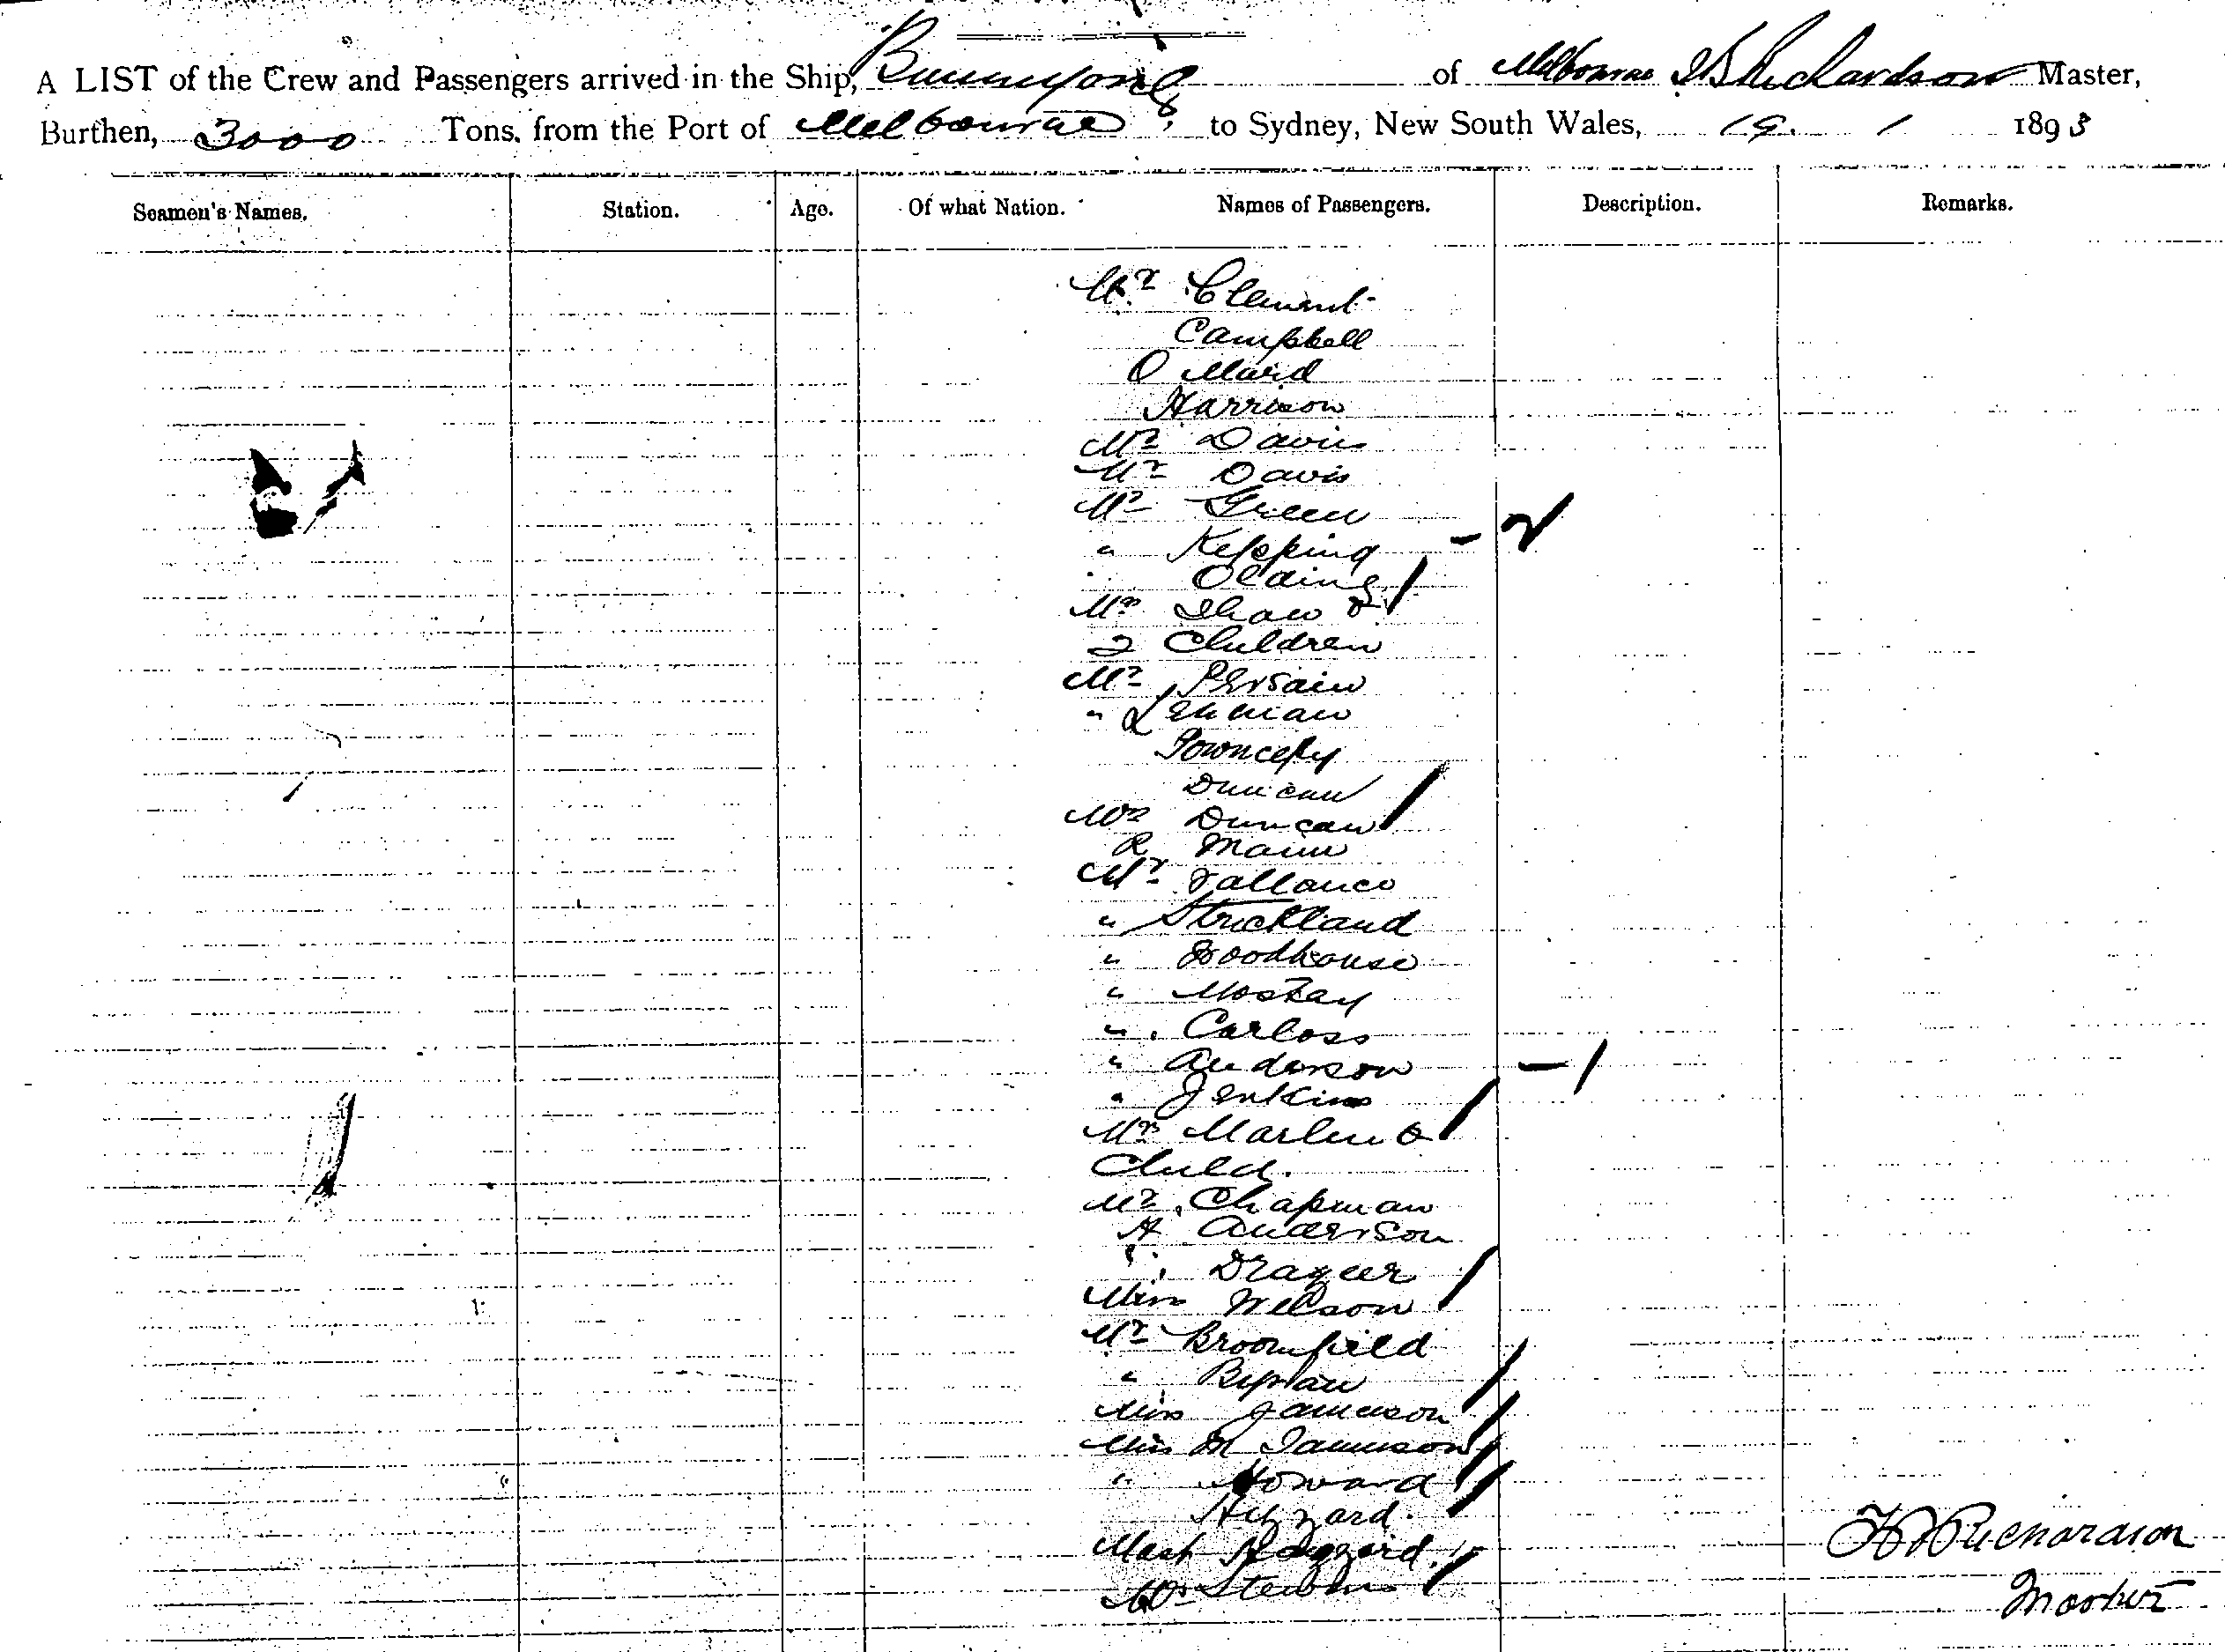 A LIST of the Crew and Passengers arrived in the Ship, Buninyong of Melbourne Richardson Master,
Burthen, 3000 Tons. from the Port of Melbourne to Sydney, New South Wales, 19. 1 1893
Seamen's Names. Station. Age. Of what Nation. Names of Passengers. Description. Remarks.
Mr Clement
Campbell
O
Harrison
Davis
Mr Davis
Mr Green
" Kepping - 2
Olding
Mrs Shaw &
2 Children
Mr
" Lehman
Duncan
Mrs Duncan
R Mann
Mr Vallance
" Strickland
" Woodhouse
" Mostay
" Carloss
" Anderson - 1
" Jenkins
Mrs Martin &
Child.
Mr Chapman
A Anderson
Drayeer
Miss Wilson
Mr Broomfield
"
Miss Jamieson
Miss M Jamieson
" Howard
Hazzard.
Mast Hazzard.
Stevens
Richardson
Master